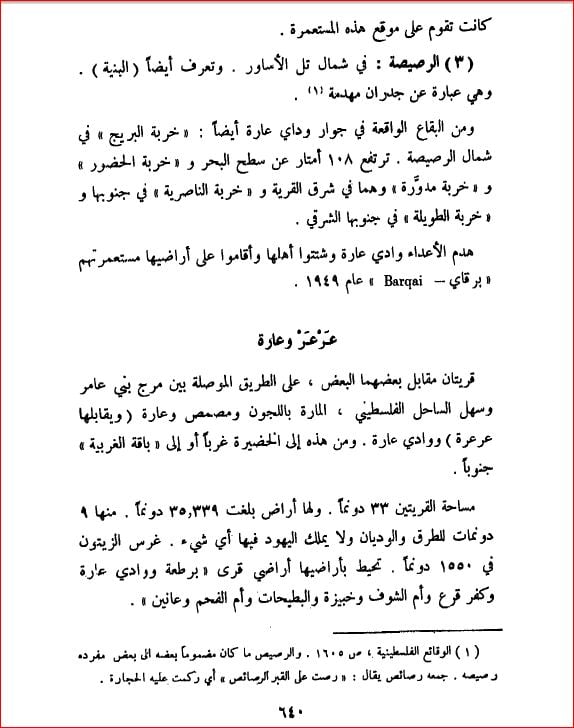 كانت تقوم على موقع هذه المستعمرة .
(٣) الرصيصة : في شمال تل الأساور . وتعرف أيضاً (البنية) .
وهي عبارة عن جدران مهدمة (١) .
ومن البقاع الواقعة في جوار وداي عارة أيضاً : « خربة البريج » في
شمال الرصيصة . ترتفع ١٠٨ أمتار عن سطح البحر و « خربة الحضور »
و « خربة مدوَّرة » وهما في شرق القرية و « خربة الناصرية » في جنوبها و
« خربة الطويلة » في جنوبها الشرقي .
هدم الأعداء وادي عارة وشتتوا أهلها وأقاموا على أراضيها مستعمرتهم
« برقاي – Barqai » عام ١٩٤٩ .
عَرْعَرَْ وعارة
قريتان مقابل بعضهما البعض ، على الطريق الموصلة بين مرج بني عامر
وسهل الساحل الفلسطيني ، المارة باللجون ومصمص وعارة (ويقابلها
عرعرة) ووادي عارة . ومن هذه إلى الخضيرة غرباً أو إلى « باقة الغربية »
جنوباً .
مساحة القريتين ٣٣ دونماً . ولها أراض بلغت ٣٥,٣٣٩ دونماً . منها ٩
دونمات للطرق والوديان ولا يملك اليهود فيها أي شيء . غرس الزيتون
في ١٥٥٠ دونماً . تحيط بأراضيها أراضي قرى « برطعة ووادي عارة
وكفر قرع وأم الشوف وخبيزة والبطيحات وأم الفحم وعانين » .
(١) الوقائع الفلسطينية ، ص ١٦٠٥ . والرصيص ما كان مضموماً بعضه الى بعض مفرده
رصيصه . جمعه رصائص يقال : « رصت على القبر الرصائص » أي ركمت عليه الحجارة .
٦٤٠